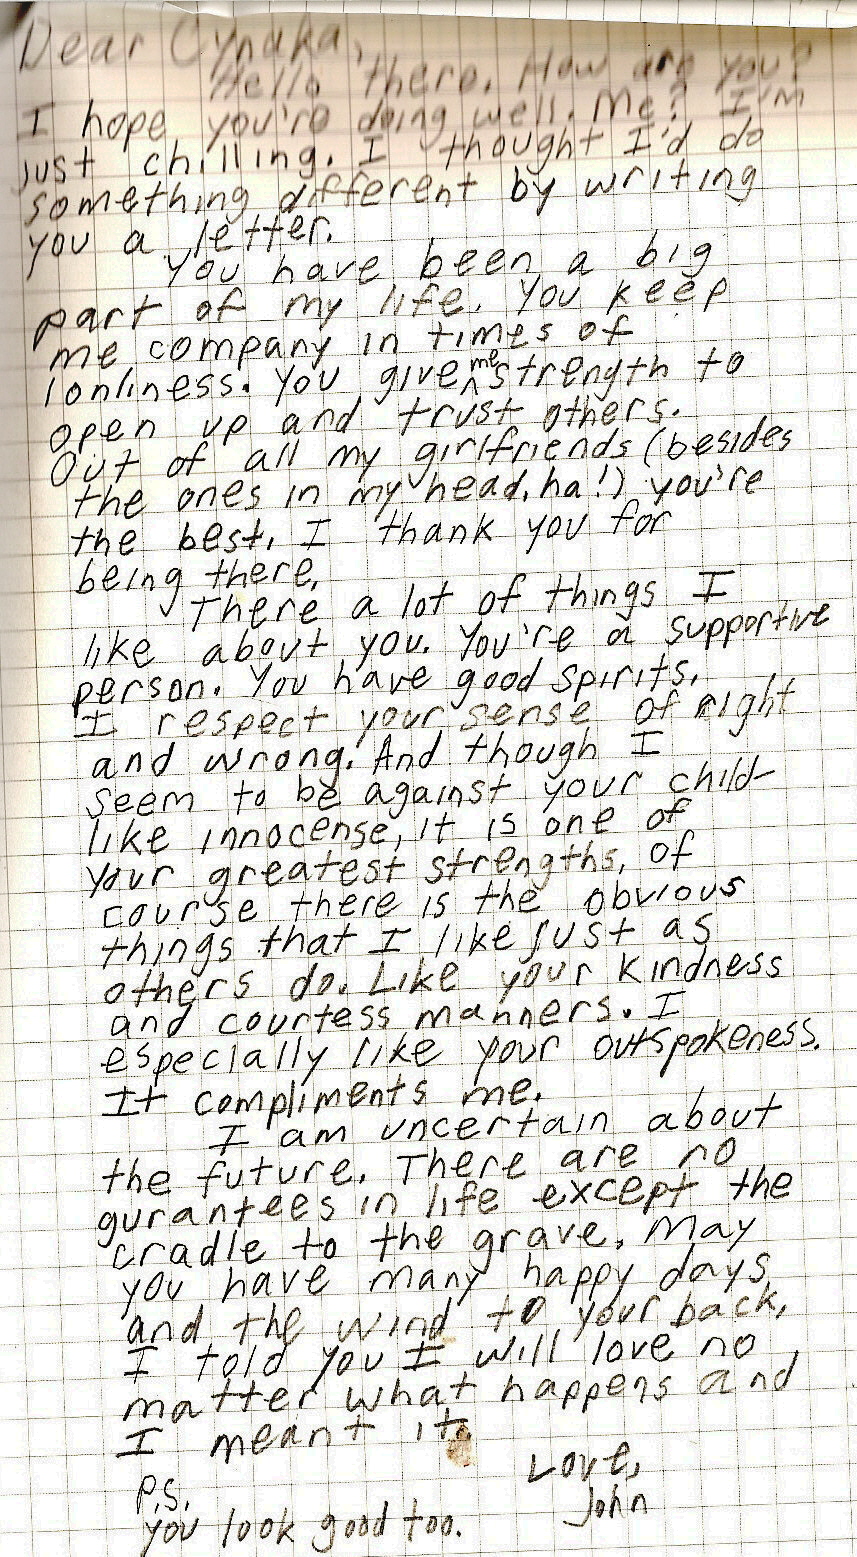 Dear Cynaka,
Hello there. How are you?
I hope you're doing well. Me? I'm
just chilling. I thought I'd do
something different by writing
you a letter.
You have been a big
part of my life. You keep
me company in times of
lonliness. You give me strength to
open up and trust others.
Out of all my girlfriends (besides
the ones in my head, ha!) you're
the best. I thank you for
being there.
There a lot of things I
like about you. You're a supportive
person. You have good spirits.
I respect your sense of right
and wrong. And though I
seem to be against your child-
like innocense, it is one of
your greatest strengths, of
course there is the obvious
things that I like just as
others do. Like your kindness
and courtess manners. I
especially like your outspokeness.
It compliments me.
I am uncertain about
the future. There are no
gurantees in life except the
cradle to the grave. May
you have many happy days
and the wind to your back.
I told you I will love no
matter what happens and
I meant it.
Love,
John
P.S.
You look good too.